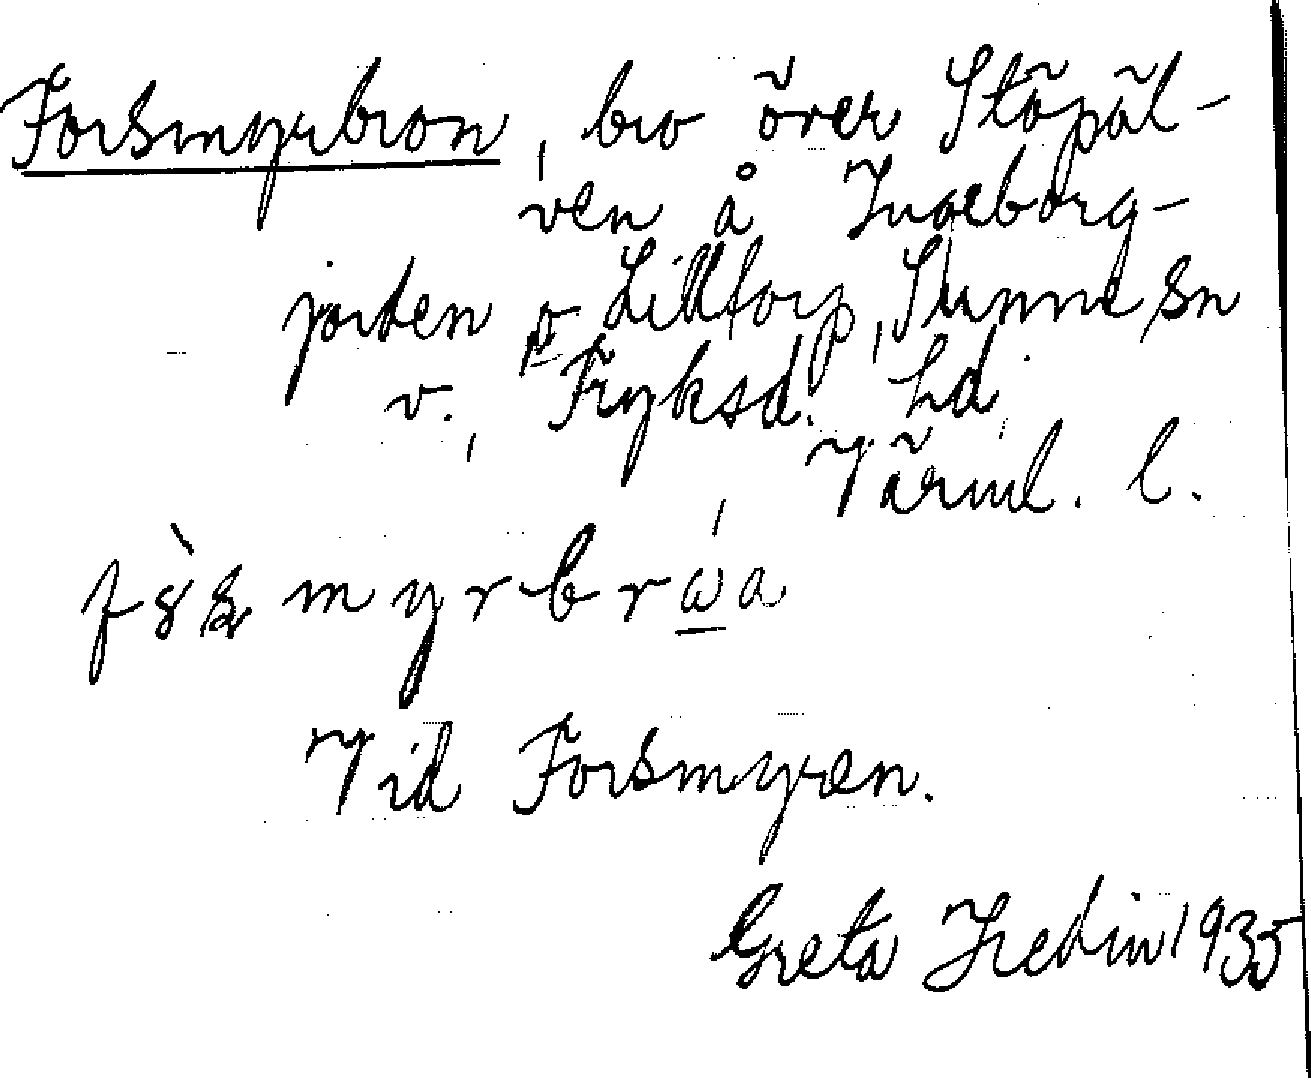 Forsmyrbron, bro över Stöpäl-
ven å Ingeborg-
jorden p Lilltorp, Sunne sn
v., Fryksd. hd,
Värml. l.
Vid Forsmyren.
Greta Hedin 1935